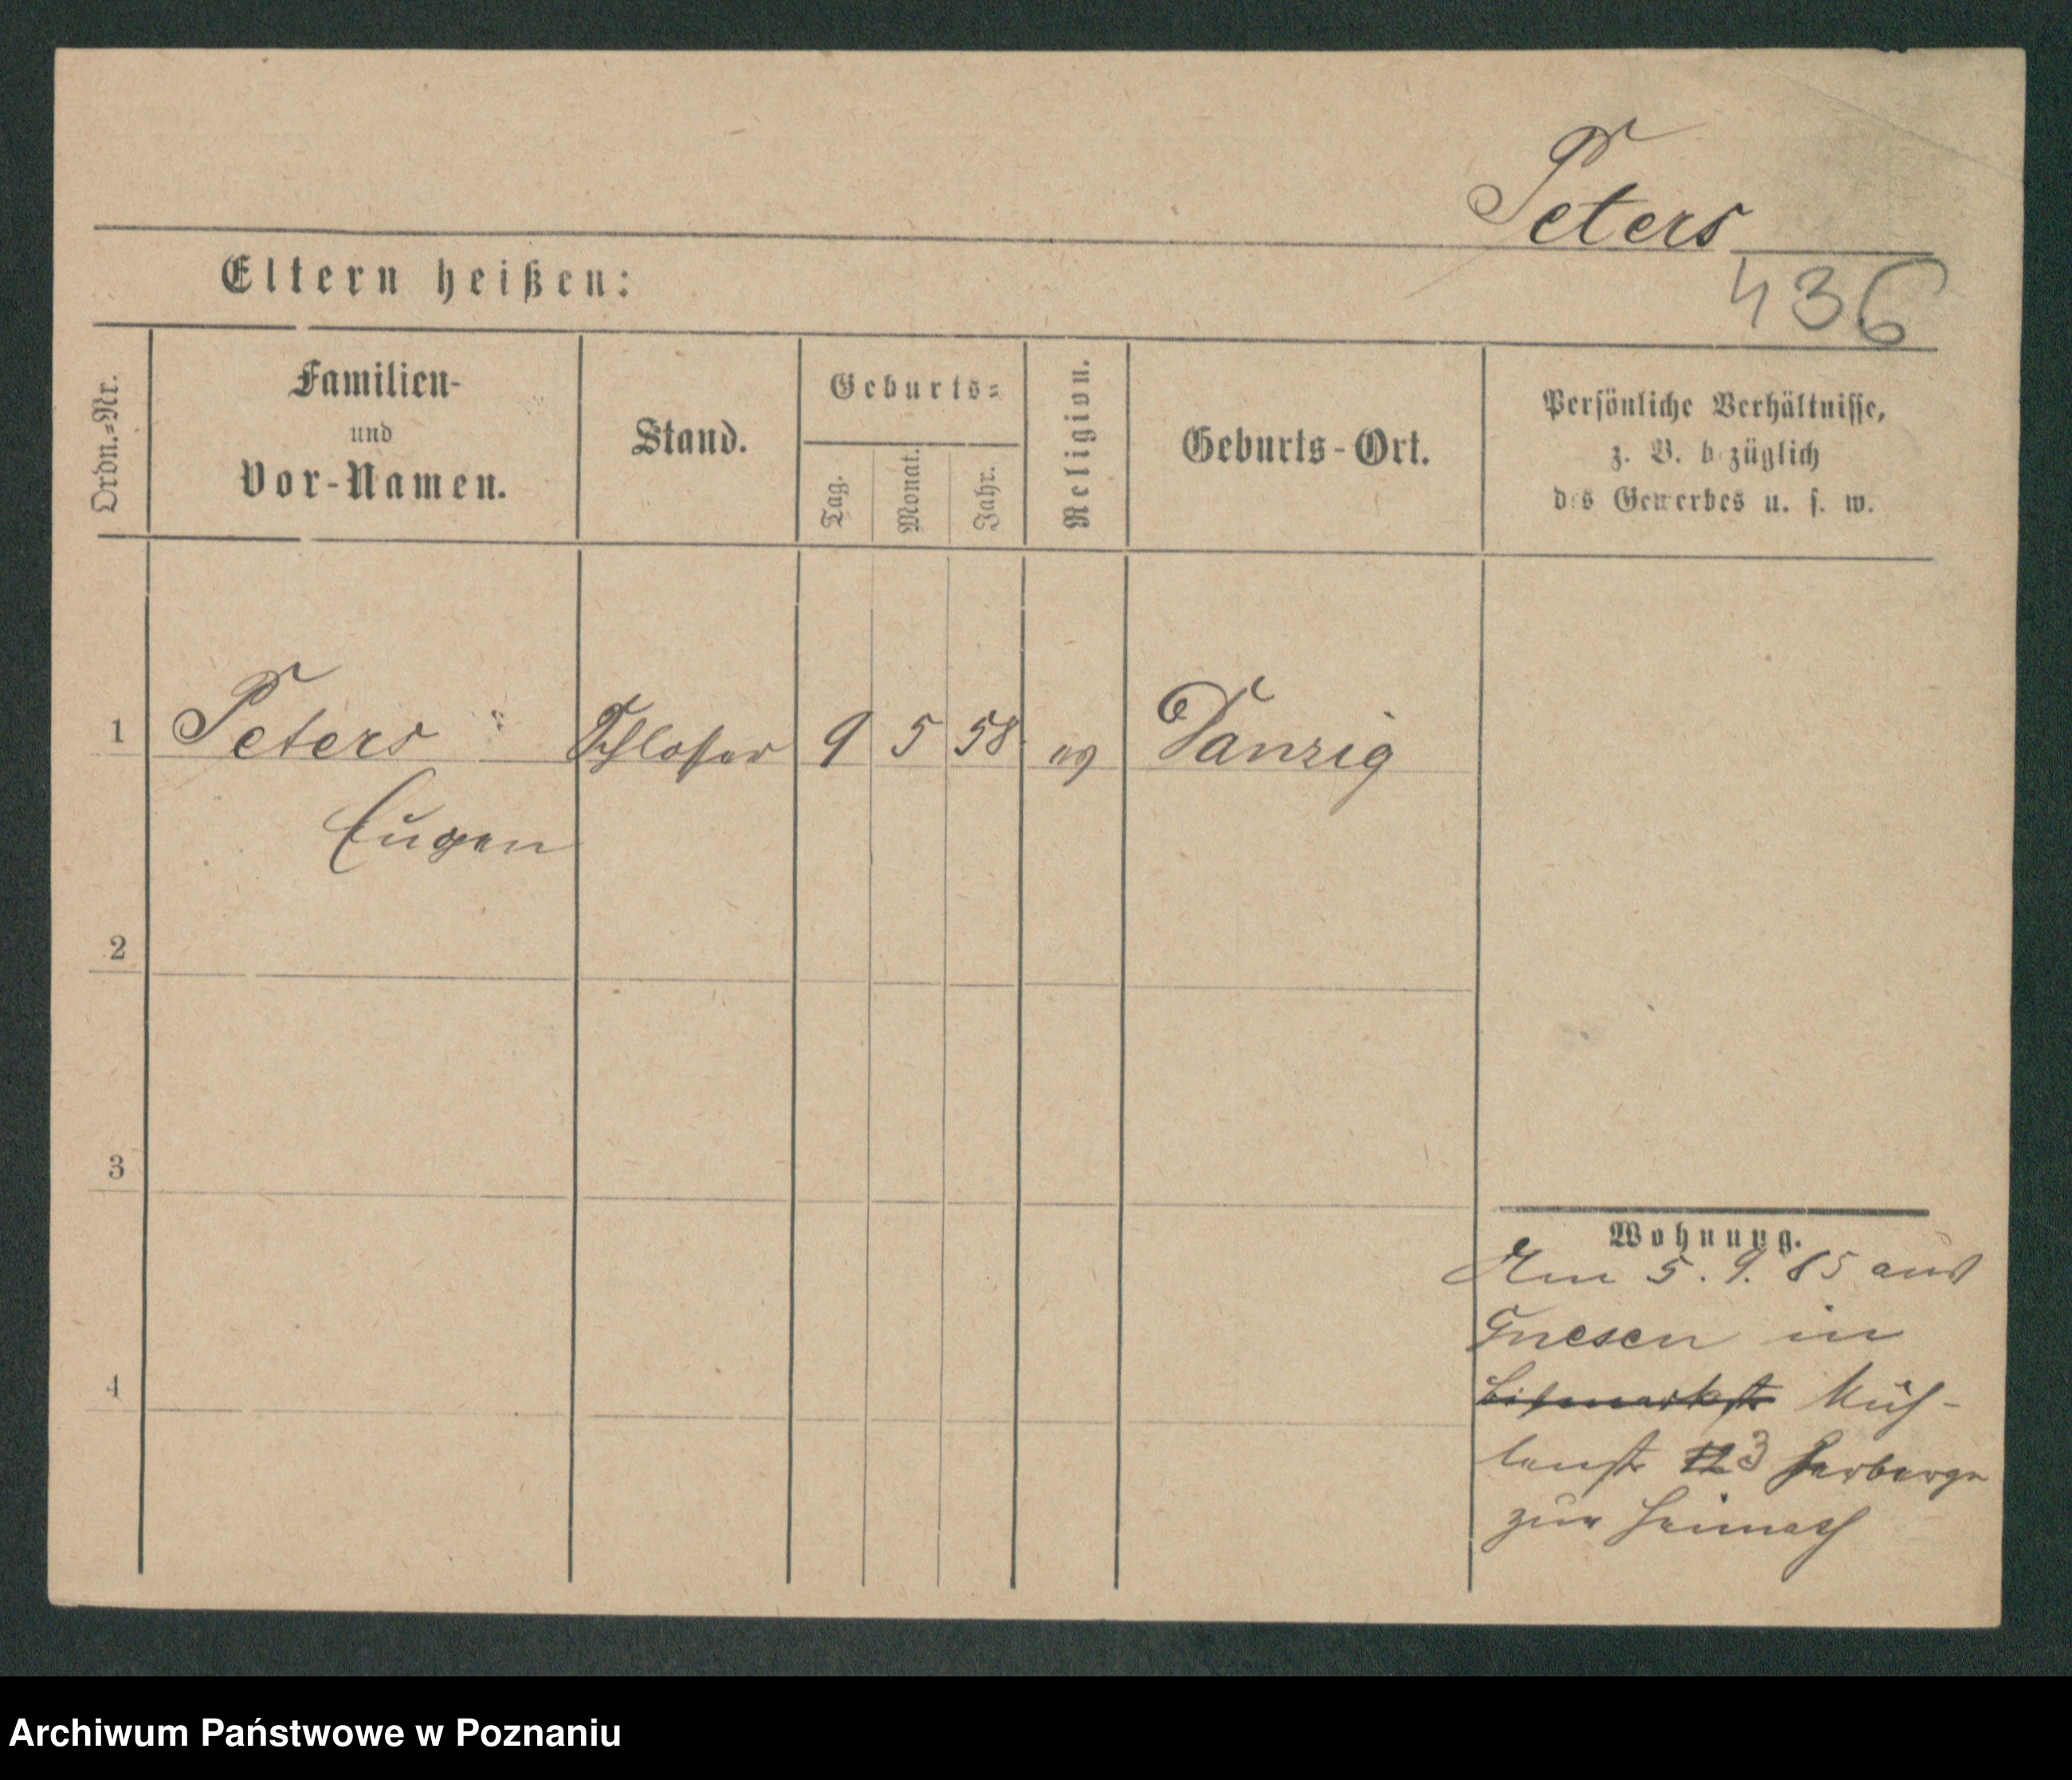 Peters
436
Eltern heißen:
Ordn.=Nr.
Familien-
und
Vor-Namen.
Stand.
Geburts=
Tag.
Monat.
Jahr.
Religion.
Geburts-Ort.
Persönliche Verhältnisse,
z. B. bezüglich
des Gewerbes u. s. w.
1 Peters Schlosser 9 5 58 ev Danzig
Eugen
2
3
4
Wohnung.
Am 5. 9. 85 aus
Gnesen in
Bismarkstr Müh-
lenstr 12 3 Herberge
zur Heimath
Archiwum Państwowe w Poznaniu